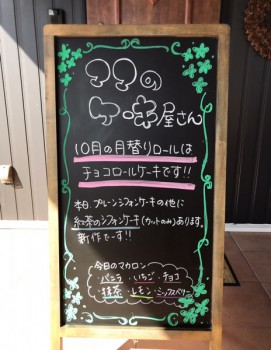 ママの
ケ味屋さん
10月の月替りロールは
チョコロールケーキです!!
本日、プレーンシフォンケーキの他に
紅茶のシフォンケーキ(カットのみ)あります。
新作でーす!!
今日のマカロン
バニラ・いちご・チョコ
抹茶・レモン・ミックスベリー